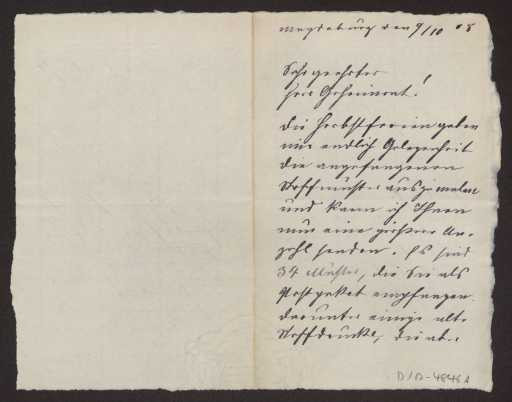 Magdeburg den 9/10 08
Sehr geehrter
Herr Geheimrat!
Die Herbstferien geben
mir endlich Gelegenheit
die angefangenen
Stoffmuster auszumalen
und kann ich Ihnen
nun eine größere An-
zahl senden. Es sind
34 Muster, die Sie als
Postpaket empfangen.
darunter einige alte
Stoffdrucke, die ab-
D/D-4846A